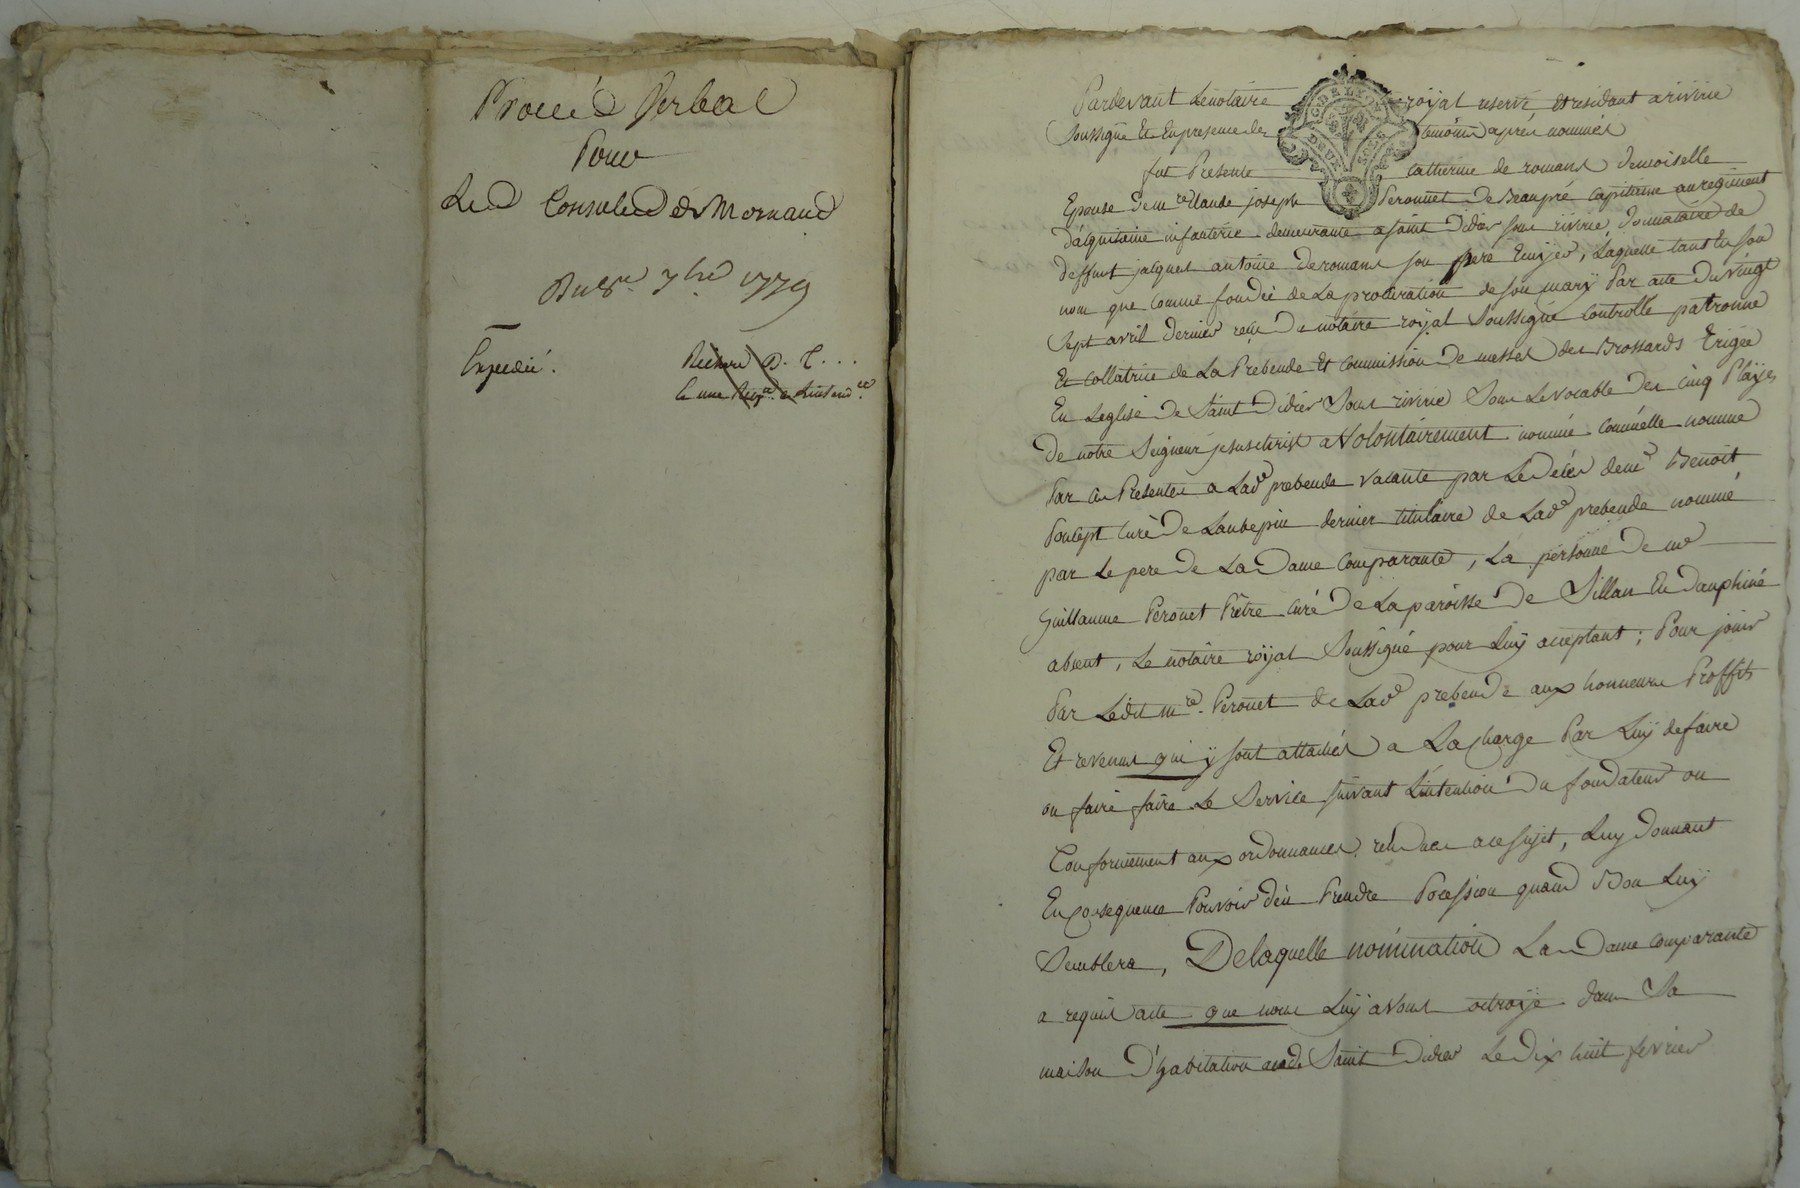 Procés Verbal
Pour
Les Consuls de Mornand
Du 8e. 7bre 1779
Expedié.
Pardevant Le notaire royal reservé et residant a riverie
Soussigné Et En presence des temoins aprés nommés
G. DE LYON
DEUX SOLS
fut Presente catherine de romans demoiselle
Epouse de mre Claude joseph Peronnet De Beaupré Capitaine au regiment
d'aquitaine infanterie demeurante a saint Didier sous riverie, donnataire de
deffunt jacques antoine de romans son pere Ecuyer, Laquelle tant En son
nom que comme fondée de La procuration de son mary Par acte du vingt
Sept avril dernier reçu Du notaire royal Soussigné controllé patronne
Et collatrice de La Prebende Et Commission de messes des Brossards Erigée
En Leglise de Saint Didier Sous riverie Sous Le vocable des cinq Playes
De notre Seigneur jesus christ a Volontairement nommé comm'elle nomme
Par ces Presentes a Lade prebende vacante par Le décés de me Benoit
Poulept Curé De Laubepin dernier titulaire de Lade prebende nommé
par Le pere De La Dame Comparante, La personne De me
Guillaume Peronet Prêtre Curé De La paroisse De Sillan En dauphiné
absent, Le notaire royal Soussigné pour Luy acceptant; Pour jouir
Par Ledit mre. Peronet de Lade prebende aux honneurs Proffits
Et revenus qui y sont attachés a La charge Par Luy de faire
ou faire faire Le Service suivant L'intention du fondateur ou
Conformement aux ordonnances rendues a ce sujet, Luy Donnant
En Consequence Pouvoir d'en Prendre Possession quand Bon Luy
Semblera, De laquelle nomination La Dame comparante
a requis acte que nous Luy avons octroyé dans Sa
maison D'habitation Saint Didier Le Dix huit fevrier